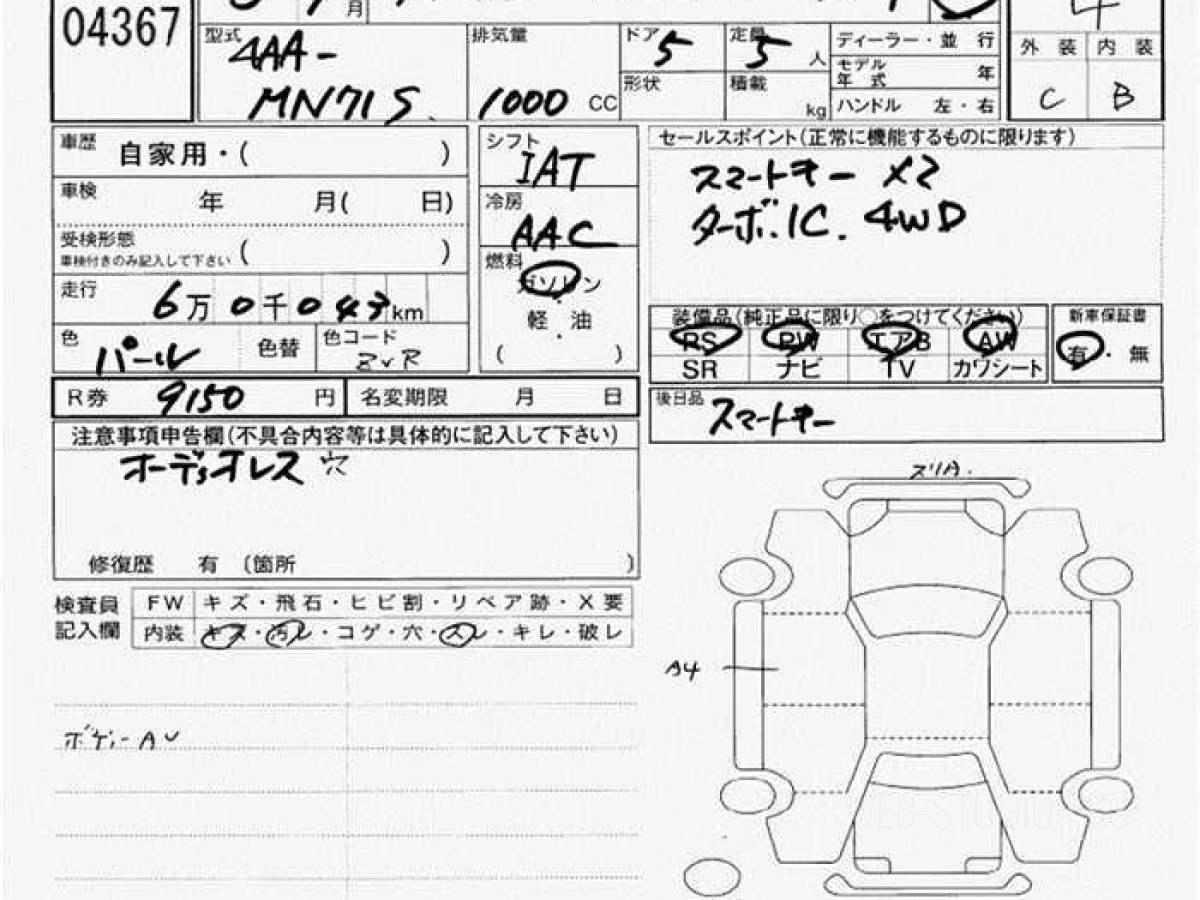 04367
月
4
型式
4AA-
MN71S
排気量
1000 CC
ドア
5
定員
5
人
形状
積載
kg
ディーラー・並 行
モデル
年 式
年
ハンドル 左・右
外 装
内 装
C
B
車歴
自家用・( )
車検
年 月( 日)
受検形態
( )
車検付きのみ記入して下さい
走行
6万0千043km
色
パール
色替
色コード
ZVR
シフト
IAT
冷房
AAC
燃料
ガソリン
・
軽 油
・
( )
セールスポイント(正常に機能するものに限ります)
スマートキー ×2
ターボ.IC. 4WD
装備品(純正品に限り○をつけてください)
PS
PW
エアB
AW
SR
ナビ
TV
カワシート
新車保証書
有・無
R券 9150 円
名変期限 月 日
後日品
スマートキー
注意事項申告欄(不具合内容等は具体的に記入して下さい)
オーディオレス 穴
修復歴 有 〔箇所 〕
検査員
記入欄
FW キズ・飛石・ヒビ割・リペア跡・X要
内装 キズ・汚レ・コゲ・穴・スレ・キレ・破レ
ボディーA
スリA.
A4